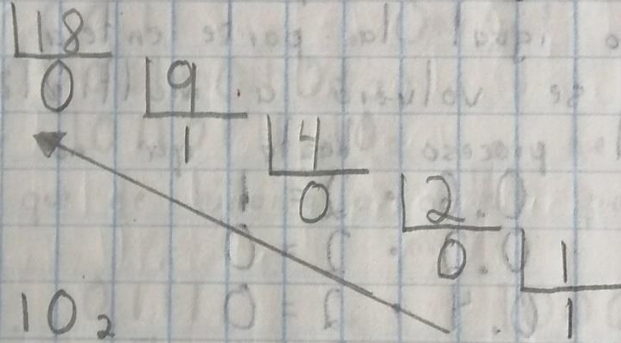 18
0
9
1
4
0
2
0
1
1
10₂